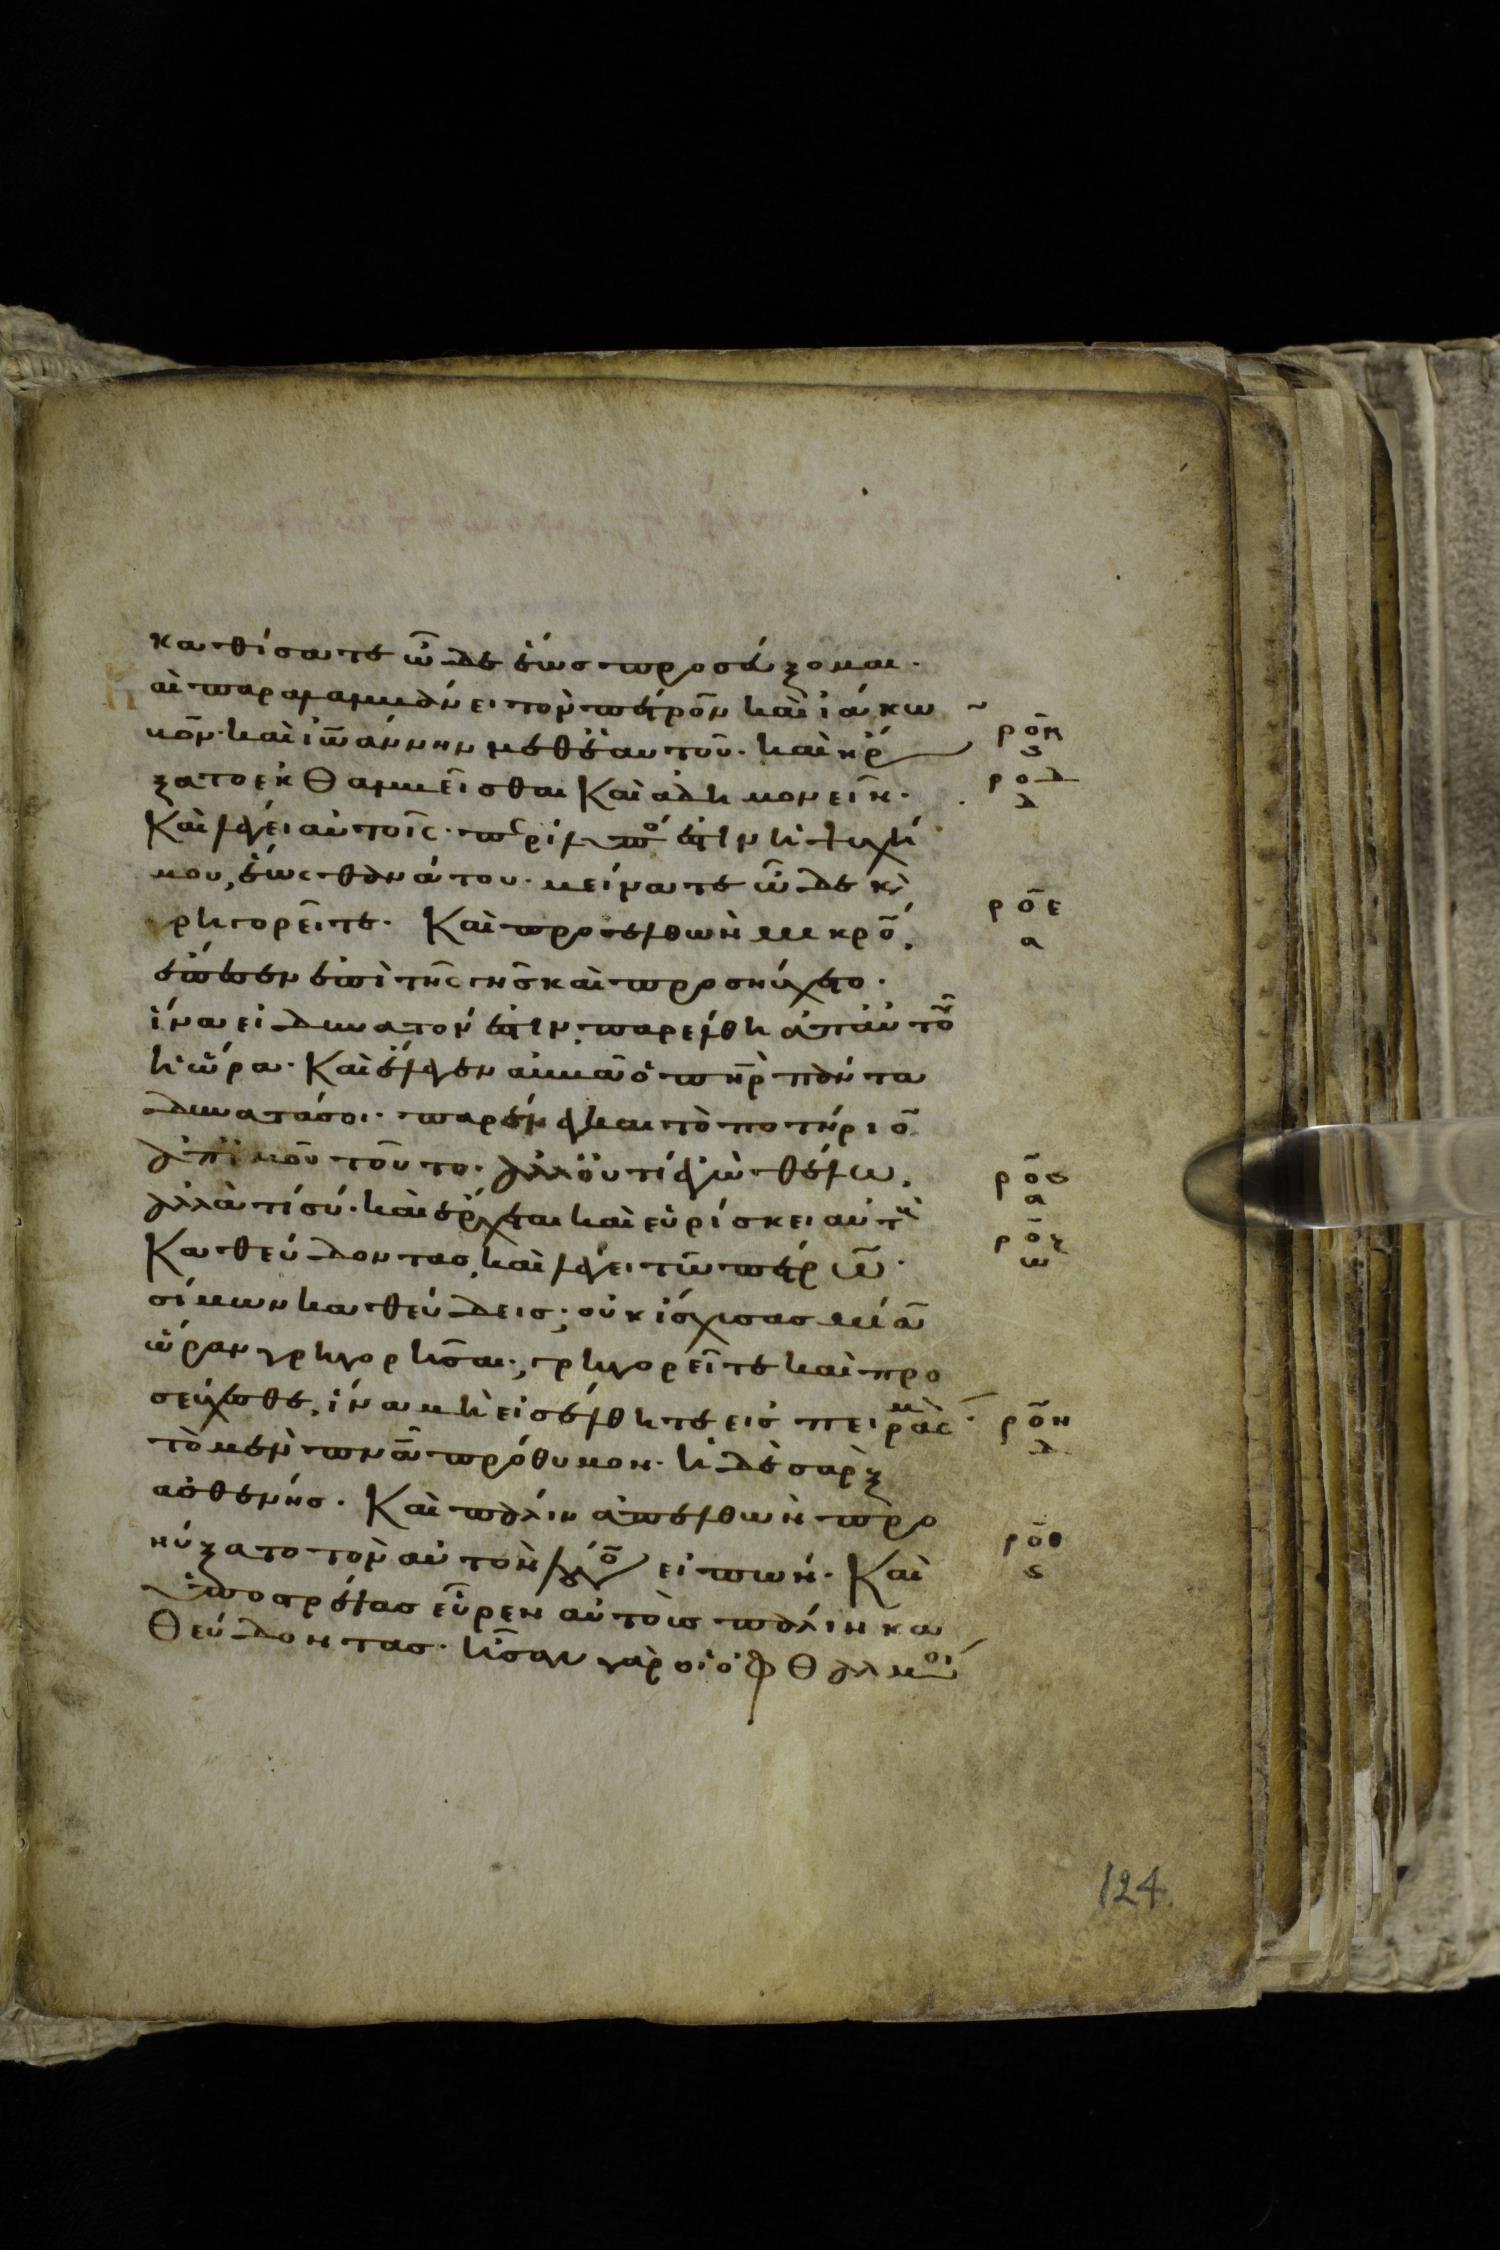 καθίσατε ὧδε ἕως προσεύξομαι·
αὶ παραλαμβάνει τὸν πέτρον καὶ ἰάκω
βον· καὶ ἰωάννην μεθ' ἑαυτοῦ· καὶ ἤρ
ξατο ἐκθαμβεῖσθαι Καὶ ἀδημονεῖν·
Καὶ λέγει αὐτοῖς· περίλυπός ἐστιν ἡ ψυχή
μου, ἕως θανάτου· μείνατε ὧδε κ(αὶ)
γρηγορεῖτε· Καὶ προσελθὼν μικρὸ(ν),
ἔπεσεν ἐπὶ τῆς γῆς καὶ προσηύχετο·
ἵνα εἰ δυνατόν ἐστιν παρέλθη ἀπ' αὐτοῦ
ἡ ὥρα· Καὶ ἔλεγεν ἀββᾶ ὁ πηρ πάντα
δυνατά σοι· παρένεγκαι τὸ ποτήριο(ν)
ἀπ' ἐμοῦ τοῦτο· ἀλλ' οὐ τί ἐγὼ θέλω,
ἀλλὰ τί σύ· καὶ ἔρχεται καὶ εὑρίσκει αὐτοὺ(ς)
Καθεύδοντας, καὶ λέγει τῶ πέτρω·
σίμων καθεύδεις; οὐκ ἴσχυσας μίαν
ὥραν γρηγορῆσαι; γρηγορεῖτε καὶ προ
σεύχεσθε, ἵνα μὴ εἰσέλθητε εἰς πειρασμό(ν)·
τὸ μὲν πνα πρόθυμον· ἡ δὲ σὰρξ
ἀσθενής· Καὶ πάλιν ἀπελθὼν προ
ηύξατο τὸν αὐτὸν λόγον εἰπών· Καὶ
ὑποστρέψας εὗρεν αὐτοὺς πάλιν κα
θεύδοντας· ἦσαν γὰρ οἱ ὀφθαλμοὶ
ρογ
ς
ροδ
δ
ροε
α
ρος
α
ροζ
ροη
δ
ροθ
ς
124.